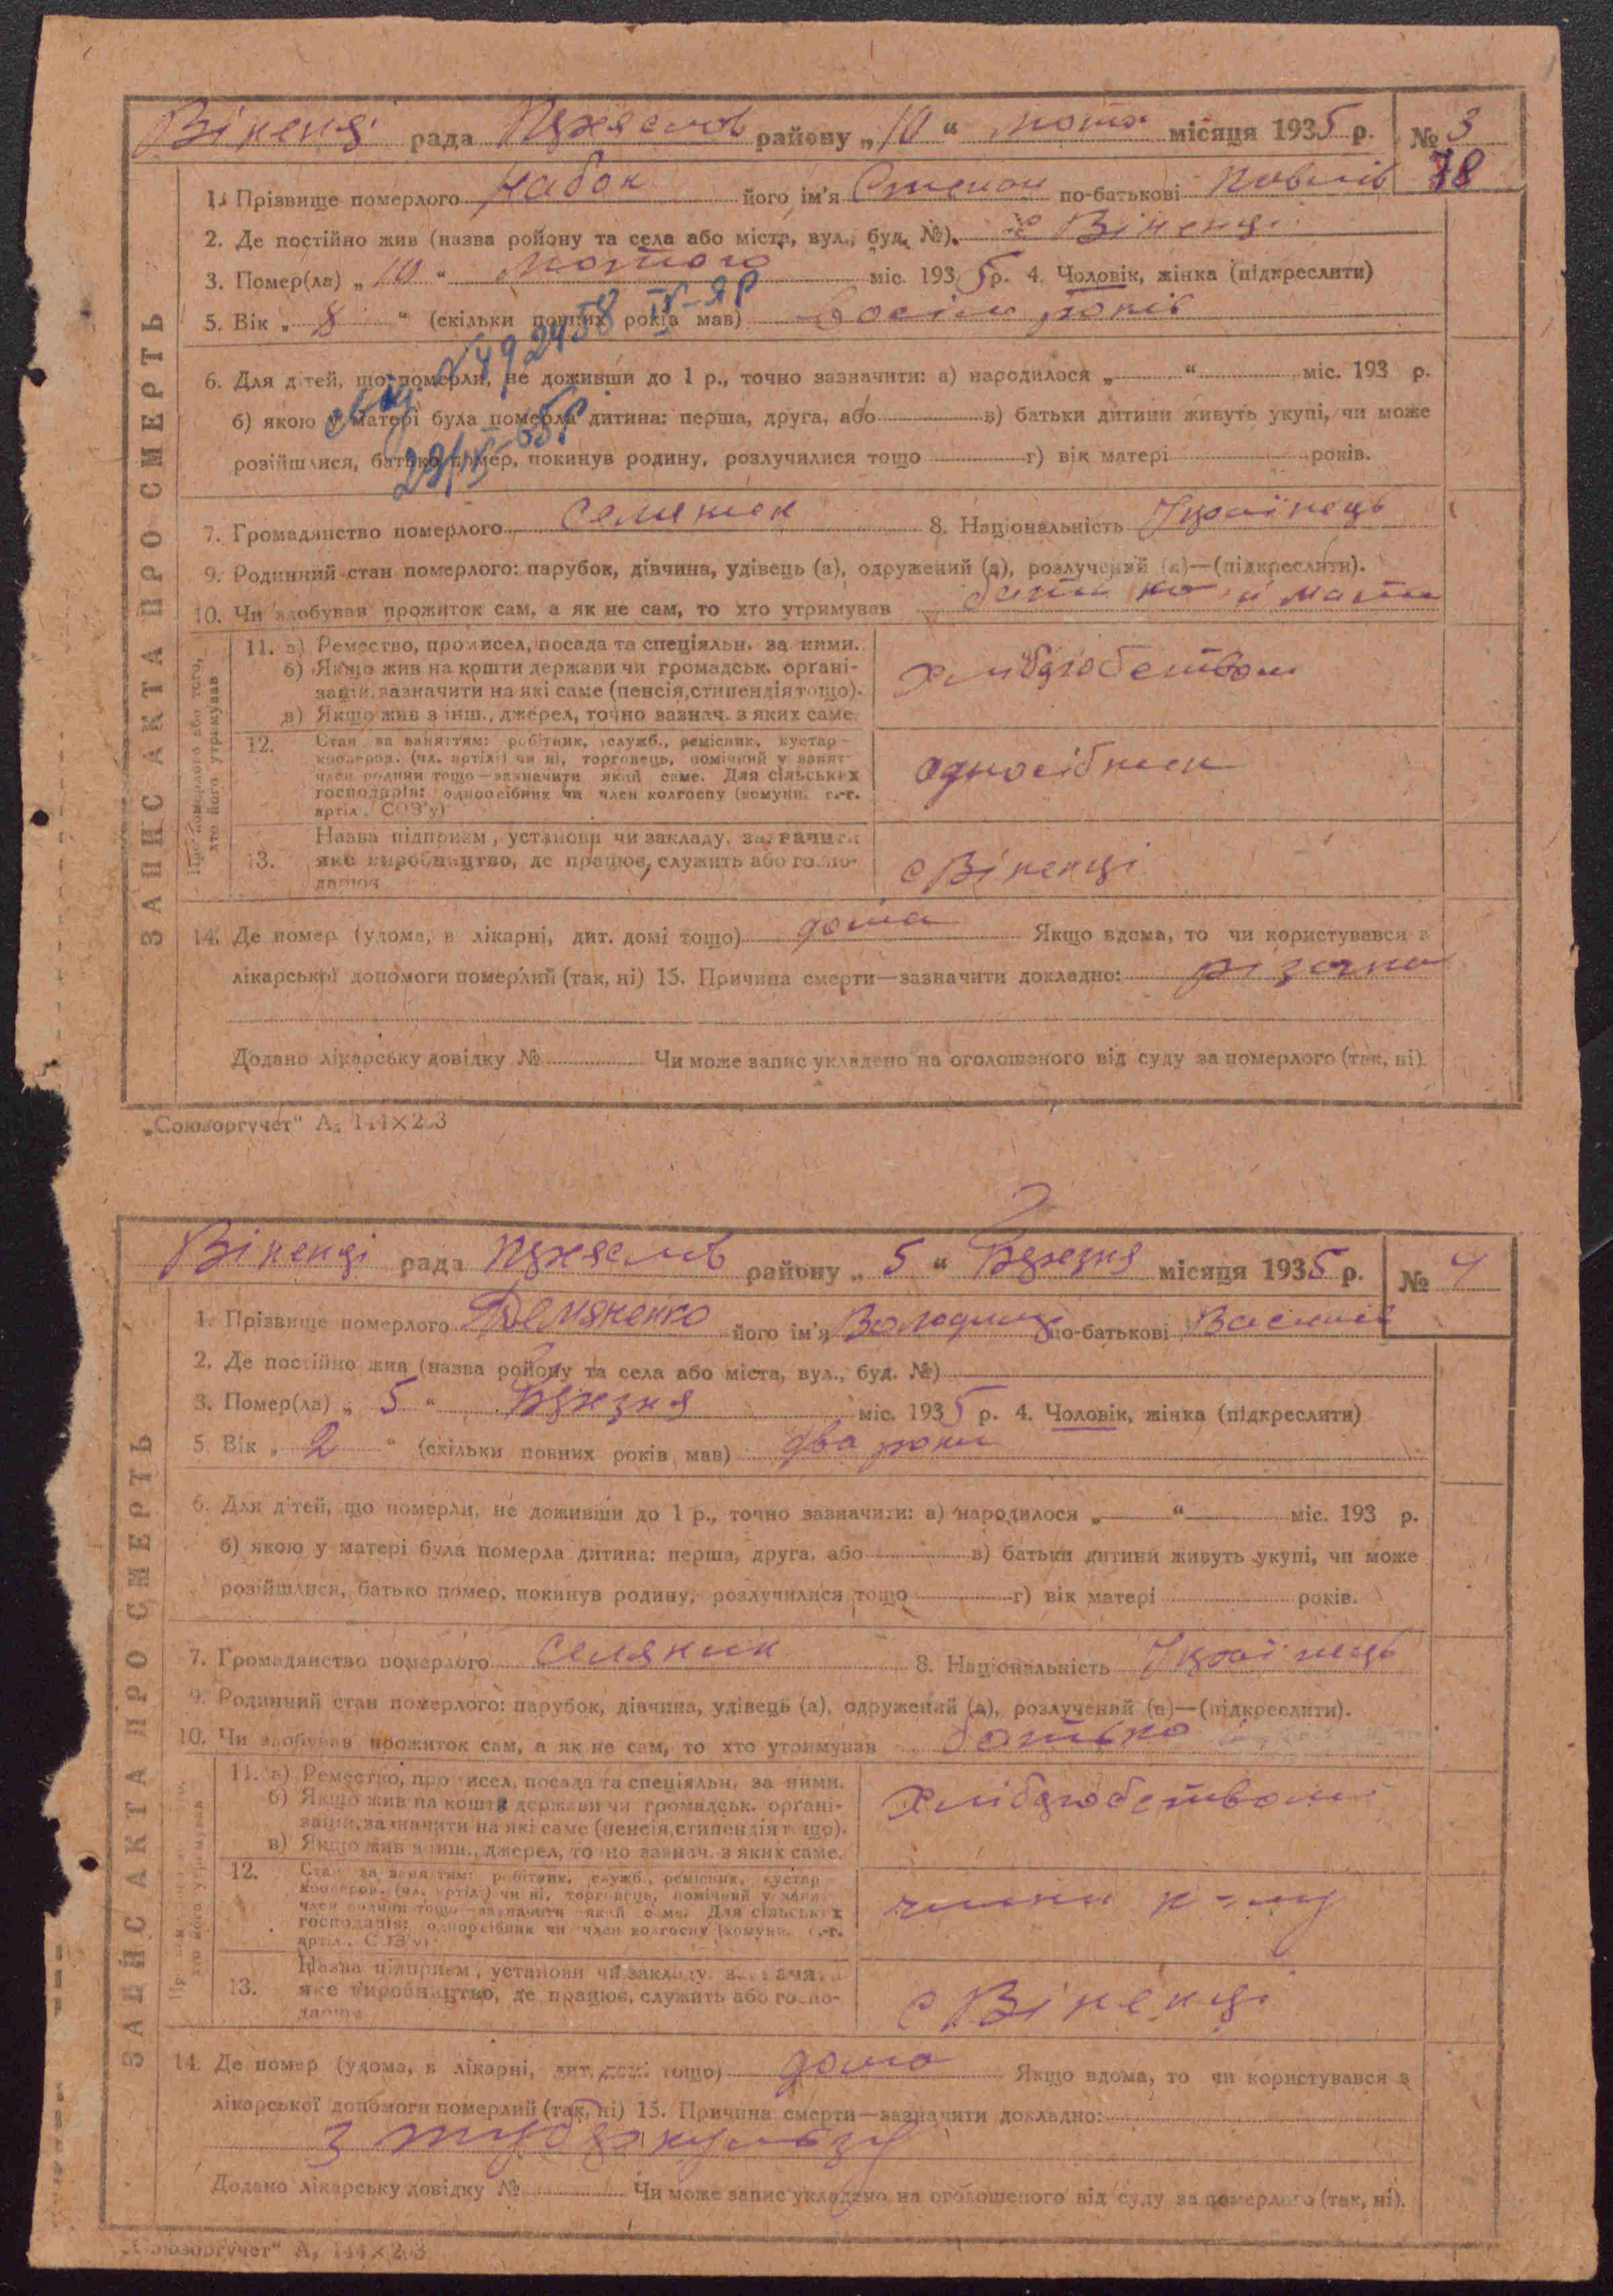 Віненці рада Переяслов району „10“ лютого місяця 1935 р. № 3
78
1. Прізвище померлого Набок його ім'я Степан по-батькові Павлів
2. Де постійно жив (назва ройону та села або міста, вул., буд. №). с Віненці
3. Помер(ла) „10“ лютого міс. 1935 р. 4. Чоловік, жінка (підкреслити)
5. Вік „8“ (скільки повних років мав) восім років
6. Для дітей, що померли, не доживши до 1 р., точно зазначити: а) народилося „ “ міс. 193 р.
б) якою у матері була померла дитина: перша, друга, або в) батьки дитини живуть укупі, чи може
розійшлися, батько помер, покинув родину, розлучилися тощо г) вік матері років.
7. Громадянство померлого Селянин 8. Національність Українець
9. Родинний стан померлого: парубок, дівчина, удівець (а), одружений (а), розлучений (а)—(підкреслити).
10. Чи здобував прожиток сам, а як не сам, то хто утримував батько й мати
ЗАПИС АКТА ПРО СМЕРТЬ
Про померлого або того, хто його утримував
11. а) Ремество, промисел, посада та спеціяльн. за ними.
б) Якщо жив на кошти держави чи громадськ. органі-
зацій, зазначити на які саме (пенсія, стипендія тощо).
в) Якщо жив з інш., джерел, точно зазнач. з яких саме.
хліборобством
12. Стан за заняттям: робітник, служб., ремісник, кустар
кооперов. (чл. артілі) чи ні, торговець, помічний у занят
член родини тощо—зазначити який саме. Для сільських
господарів: одноосібник чи член колгоспу (комуни, с.-г.
артіл., СОЗ'у)
одноосібник
13. Назва підприєм., установи чи закладу, зазначити
яке виробництво, де працює, служить або госпо-
дарює
с Віненці
14. Де помер (удома, в лікарні, дит. домі тощо) дома Якщо вдома, то чи користувався з
лікарської допомоги померлий (так, ні) 15. Причина смерти—зазначити докладно:
Додано лікарську довідку № Чи може запис укладено на оголошеного від суду за померлого (так, ні).
„Союзоргучет“ А5 144×203
Віненці рада Переяслов району „5“ Березня місяця 1935 р. № 4
1. Прізвище померлого Демяненко його ім'я Володимир по-батькові Василів
2. Де постійно жив (назва ройону та села або міста, вул., буд. №)
3. Помер(ла) „5“ Березня міс. 1935 р. 4. Чоловік, жінка (підкреслити)
5. Вік „2“ (скільки повних років мав) два роки
6. Для дітей, що померли, не доживши до 1 р., точно зазначити: а) народилося „ “ міс. 193 р.
б) якою у матері була померла дитина: перша, друга, або в) батьки дитини живуть укупі, чи може
розійшлися, батько помер, покинув родину, розлучилися тощо г) вік матері років.
7. Громадянство померлого Селянин 8. Національність Українець
9. Родинний стан померлого: парубок, дівчина, удівець (а), одружений (а), розлучений (а)—(підкреслити).
10. Чи здобував прожиток сам, а як не сам, то хто утримував батько
ЗАПИС АКТА ПРО СМЕРТЬ
11. а) Ремество, промисел, посада та спеціяльн. за ними.
б) Якщо жив на кошти держави чи громадськ. органі-
зацій, зазначити на які саме (пенсія, стипендія тощо).
в) Якщо жив з інш., джерел, точно зазнач. з яких саме.
хліборобством
12. Стан за заняттям: робітник, служб., ремісник, кустар
кооперов. (чл. артілі) чи ні, торговець, помічний у занят
член родини тощо—зазначити який саме. Для сільських
господарів: одноосібник чи член колгоспу (комуни, с.-г.
артіл., СОЗ'у)
13. Назва підприєм., установи чи закладу, зазначити
яке виробництво, де працює, служить або госпо-
дарює
с Віненці
14. Де помер (удома, в лікарні, дит. домі тощо) дома Якщо вдома, то чи користувався з
лікарської допомоги померлий (так, ні) 15. Причина смерти—зазначити докладно:
з туберкульозу
Додано лікарську довідку № Чи може запис укладено на оголошеного від суду за померлого (так, ні).
„Союзоргучет“ А5 144×203